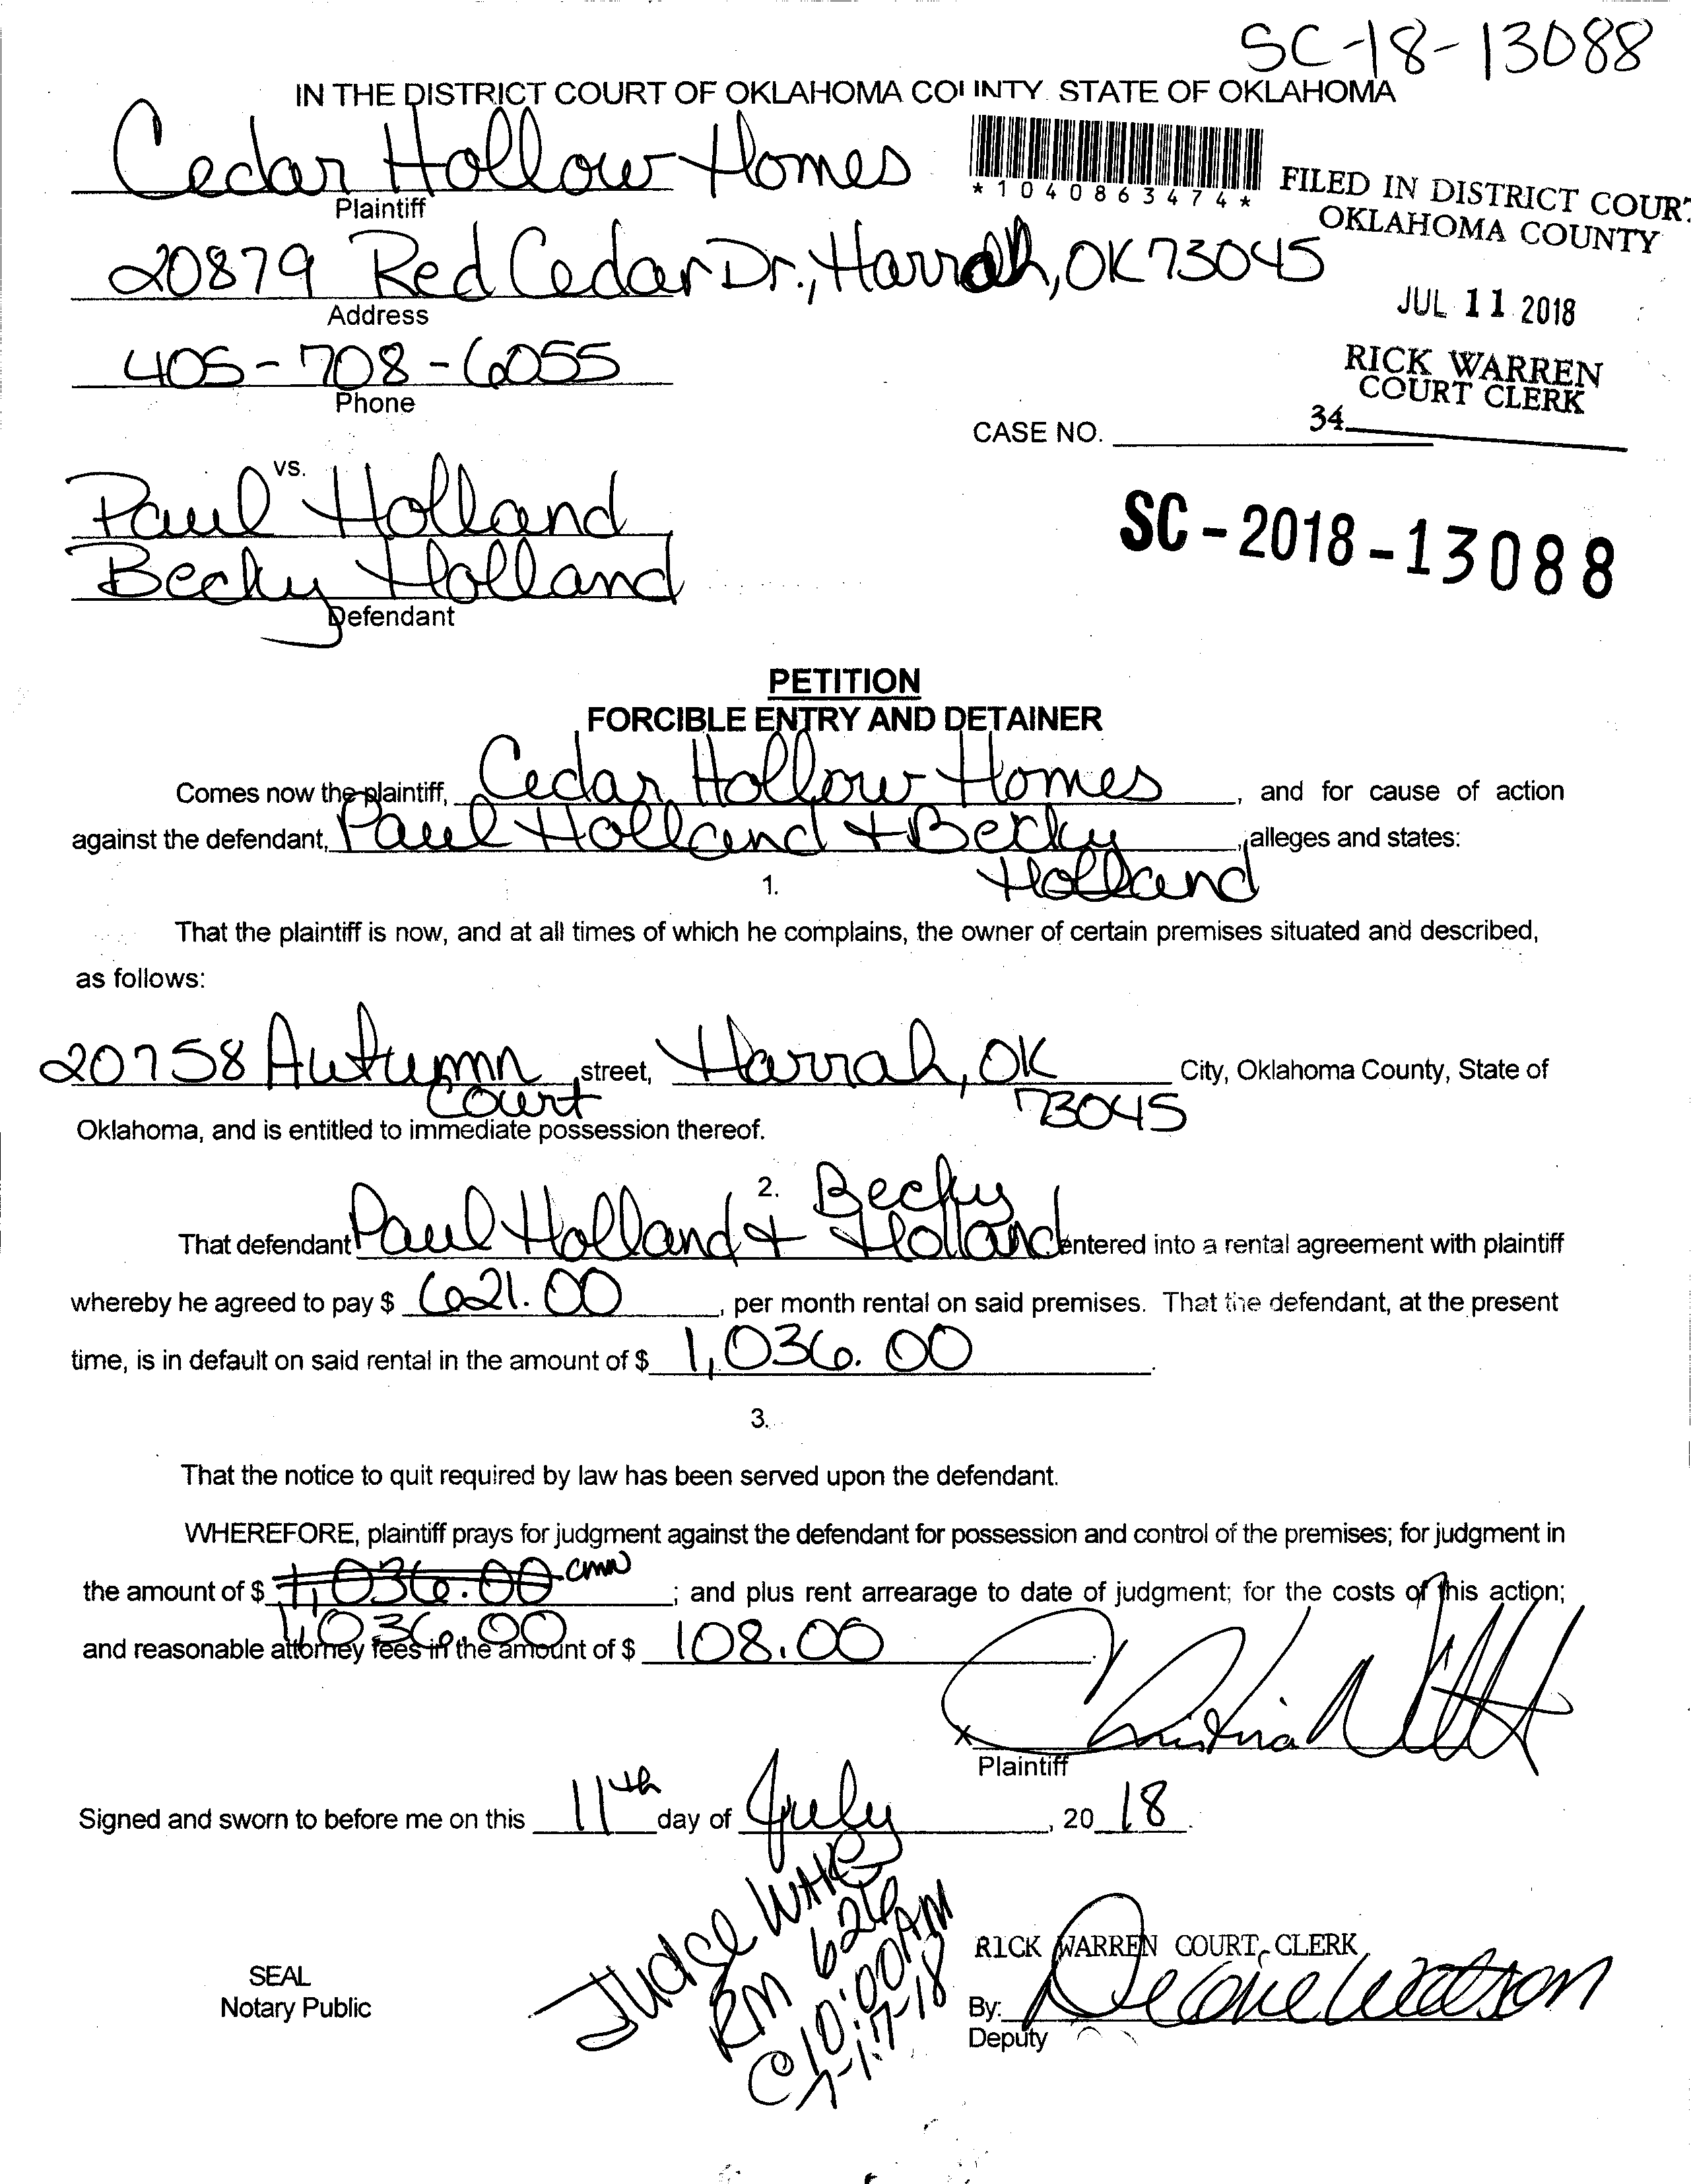 SC-18-13088
IN THE DISTRICT COURT OF OKLAHOMA COUNTY, STATE OF OKLAHOMA
Cedar Hollow Homes
Plaintiff
*1040863474*
FILED IN DISTRICT COURT
OKLAHOMA COUNTY
20879 Red Cedar Dr., Harrah, OK 73045
Address
JUL 11 2018
405-708-6055
Phone
RICK WARREN
COURT CLERK
CASE NO.
34
vs.
Paul Holland
Becky Holland
Defendant
SC-2018-13088
PETITION
FORCIBLE ENTRY AND DETAINER
Comes now the plaintiff, Cedar Hollow Homes, and for cause of action
against the defendant, Paul Holland + Becky Holland, alleges and states:
1.
That the plaintiff is now, and at all times of which he complains, the owner of certain premises situated and described,
as follows:
20758 Autumn Court street, Harrah, OK 73045 City, Oklahoma County, State of
Oklahoma, and is entitled to immediate possession thereof.
2.
That defendant Paul Holland + Becky Holland entered into a rental agreement with plaintiff
whereby he agreed to pay $ 621.00, per month rental on said premises. That the defendant, at the present
time, is in default on said rental in the amount of $ 1,036.00.
3.
That the notice to quit required by law has been served upon the defendant.
WHEREFORE, plaintiff prays for judgment against the defendant for possession and control of the premises; for judgment in
the amount of $ 1,036.00 cmw ; and plus rent arrearage to date of judgment; for the costs of this action;
1,036.00
and reasonable attorney fees in the amount of $ 108.00.
x
Plaintiff
Signed and sworn to before me on this 11th day of July, 20 18.
Judge
RM
10:00 AM
RICK WARREN COURT CLERK
SEAL
Notary Public
By:
Deputy